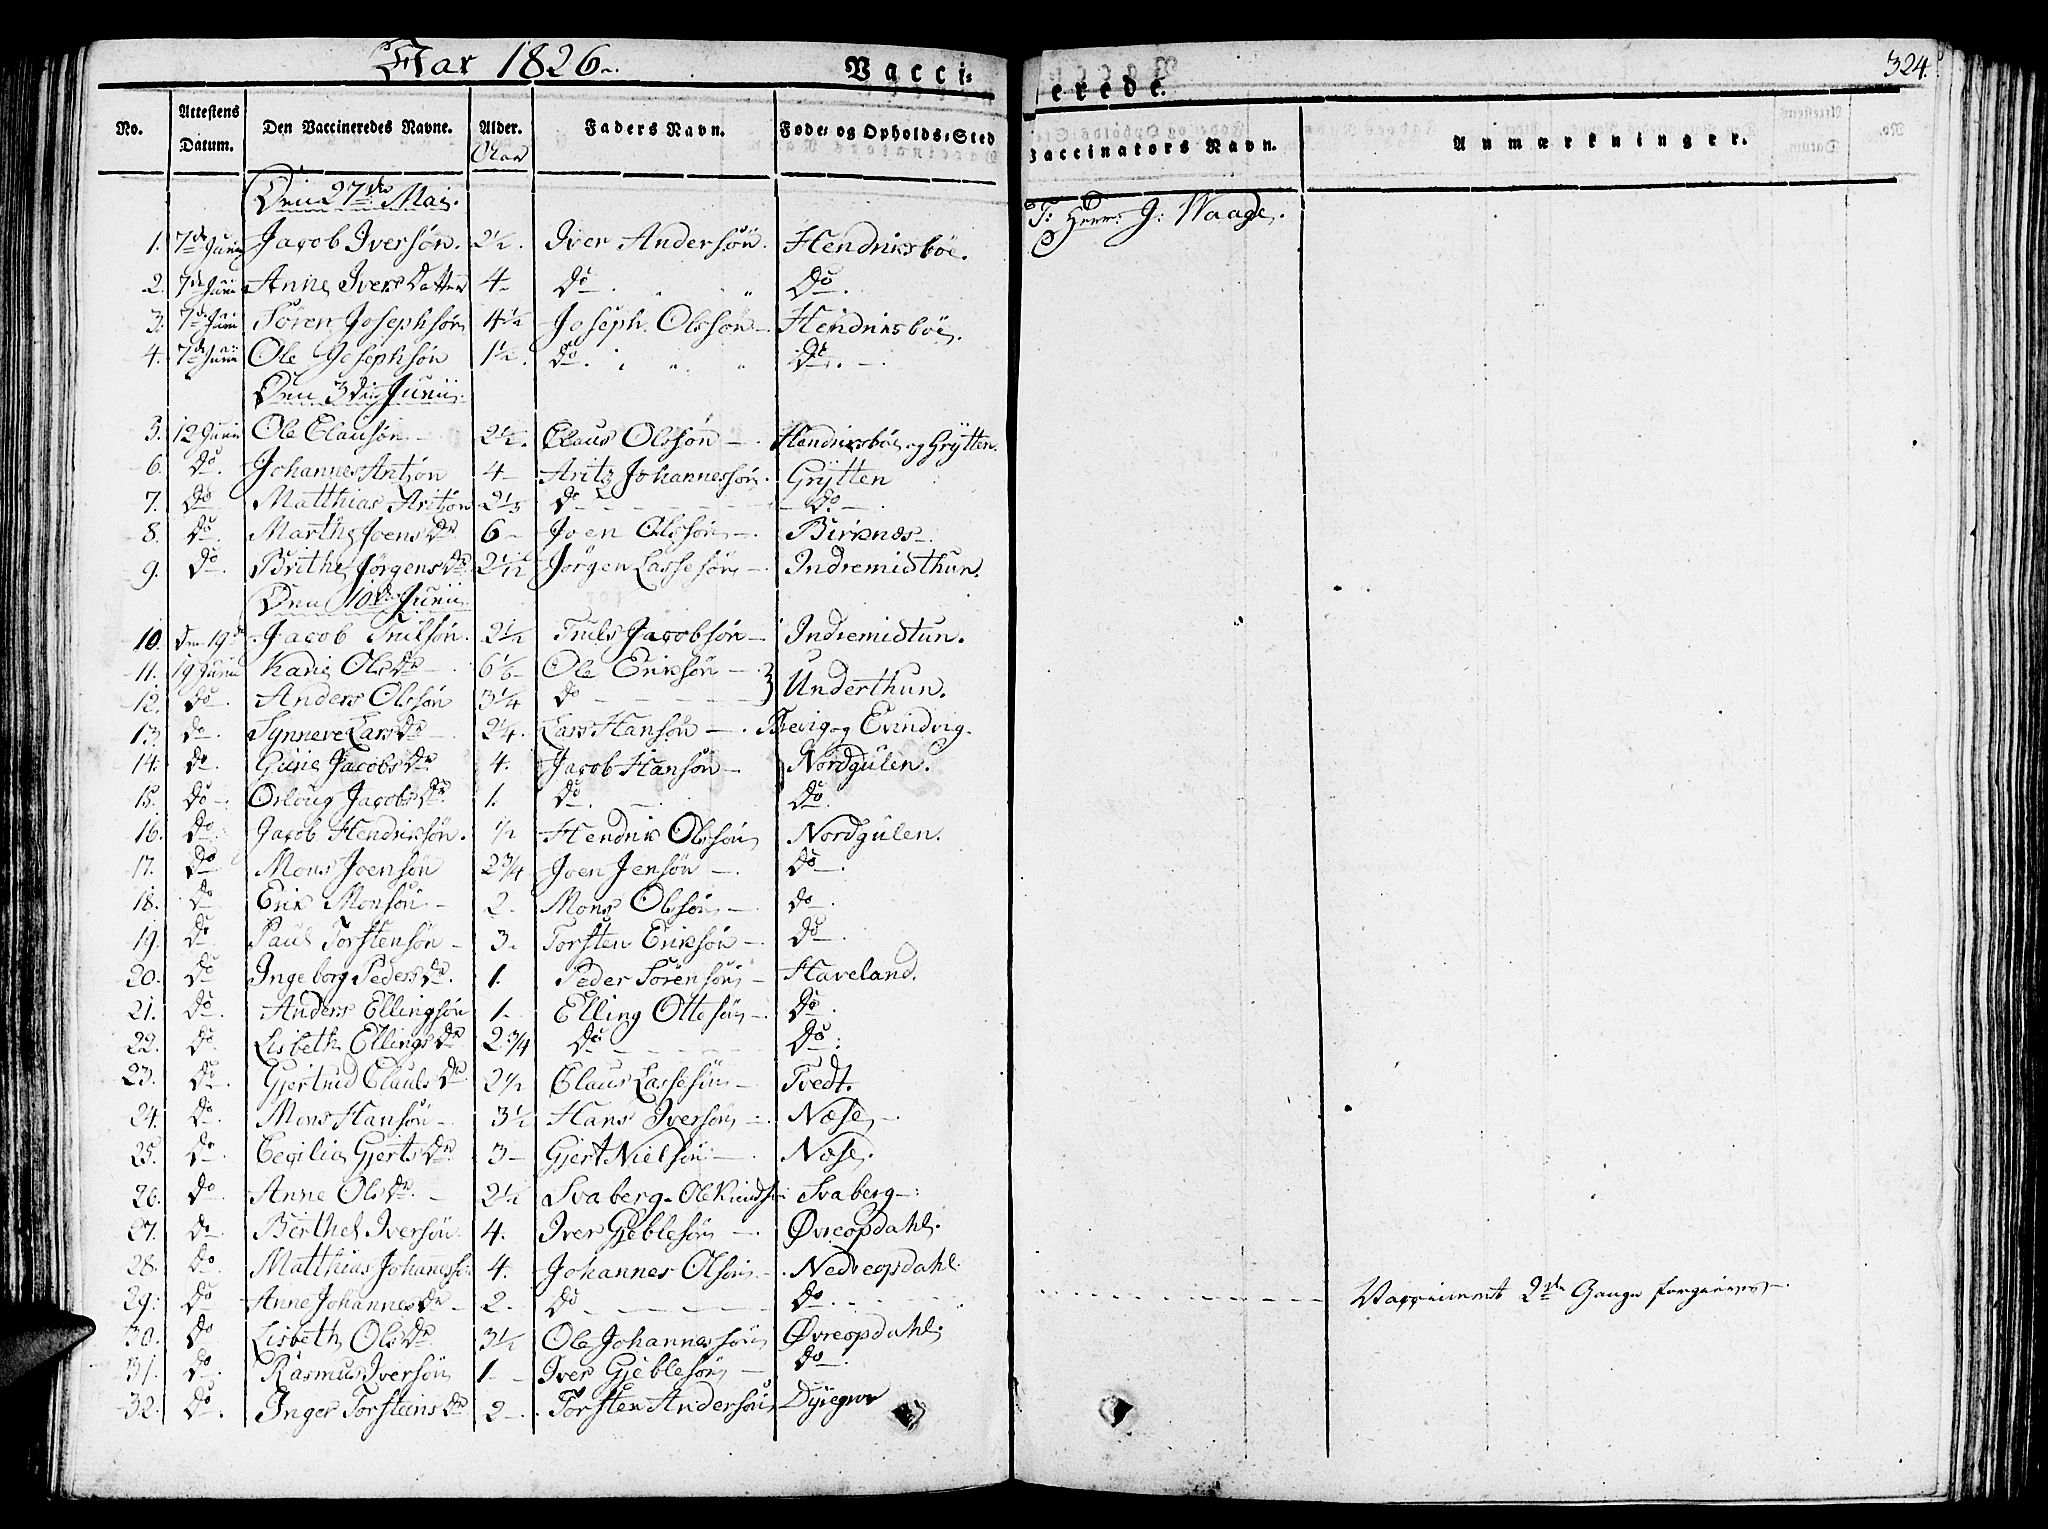 Aar 1826.
Vacci=
erede.
324.
No. Attestens Datum. Den Vaccineredes Navne. Alder. Aar Faders Navn. Føde= og Opholds=Sted Vaccinators Navn. Anmærkninger.
Den 27de Mai.
1. 7de Junii Jacob Iversøn. 2½. Iver Andersøn. Hendriksbøe. Hr: J: Waage.
2. 7de Junii Anne Ivers Datter 4 Do Do.
3. 7de Junii Søren Josephsøn 4½ Joseph Olssøn Hendriksbøe.
4. 7de Junii Ole Josephsøn 1½. Do. Do.
Den 3die Junii.
5. 12 Junii Ole Clausøn 2½. Claus Olssøn Hendriksbøe og Grytten.
6. Do. Johannes Aritzøn 4 Aritz Johannessøn. Grytten
7. Do Matthias Aritzøn 2⅓ Do Do
8. Do. Marthe Joens Dr 6 Joen Olssøn Birknæs.
9. Do. Brithe Jørgens Dr 2½ Jørgen Lassesøn Indremidthun.
Den 10de Junii.
10. den 19de Jacob Trulsøn. 2½ Truls Jacobsøn Indremidtun.
11. 19 Junii Kari Ols Dr 6⅙ Ole Eriksøn } Underthun.
12. Do. Anders Olssøn 3¼ Do
13. do. Synneve Lars Dr 2¼. Lars Hansøn Brevig og Evindvig.
14. Do. Guni Jacobs Dr. 4. Jacob Hansøn Nordgulen.
15. Do Orloug Jacobs Dr. 1. Do. Do.
16. Do. Jacob Hendriksøn. ½ Hendrik Olssøn Nordgulen.
17. Do. Mons Joensøn 2¾ Joen Jensøn Do.
18. do Erik Monsøn 2. Mons Olssøn do.
19. Do Paul Torstensøn 3. Torsten Eriksøn Do.
20. Do Ingeborg Peders Dr. 1. Peder Sørensøn Haveland.
21. Do. Anders Ellingsøn 1. Elling Ottesøn Do.
22. Do. Lisbeth Ellings Dr 2¾ Do Do.
23. Do. Gjertrud Clauses Dr 2½ Claus Lassesøn Tvedt.
24. Do. Mons Hansøn 3½ Hans Iversøn Næse.
25. Do. Cecilia Gjerts Dr. 3 Gjert Nielsøn Næse.
26. Do. Anne Ols Dr. 2½ Svaberg. Ole Knudsøn Svaberg.
27. Do. Berthel Iversøn. 4. Iver Gjeblesøn Øvreopdahl.
28. Do. Matthias Johannessøn 4. Johannes Olsøn Nedreopdahl.
29. Do Anne Johannes Dr 2. Do Do. Vaccineret 2de Gange forgieves.
30. Do Lisbeth Ols Dr. 3½ Ole Johannessøn Øvreopdahl.
31. Do. Rasmus Iversøn 1 Iver Gjeblesøn Do.
32. Do. Inger Torsteins Dr 2. Torsten Andersøn